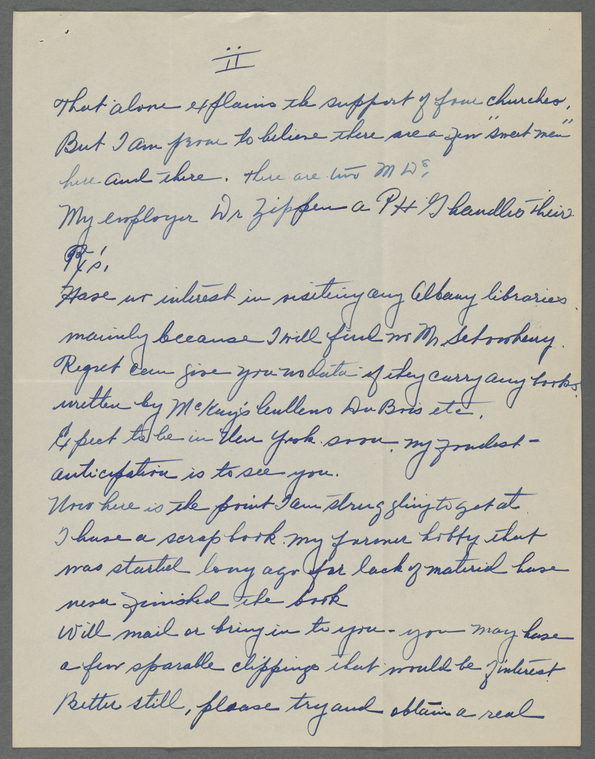 II
That alone explains the support of four churches.
But I am prone to believe there are a few "sweet men"
here and there. There are two M Ds,
My employer Dr Zippen a PH G handles their
Rx's.
Have no interest in visiting any Albany libraries
mainly because I will find no Mr
Regret can give you no data if they carry any books
written by McKay's Cullens Du Bois etc.
Expect to be in New York soon, my fondest -
anticipation is to see you.
Now here is the point I am struggling to get at
I have a scrap book. My former hobby that
was started long ago for lack of material have
never finished the book
Will mail or bring in to you - you may have
a few sparable clippings that would be of interest
Better still, please try and obtain a real